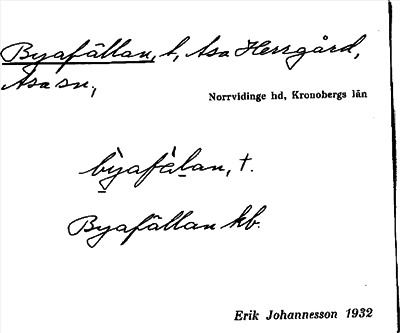 Byafällan, t, Asa Herrgård,
Asa sn,
Norrvidinge hd, Kronobergs län
bỳafèḷan, t.
Byafällan kb.
Erik Johannesson 1932